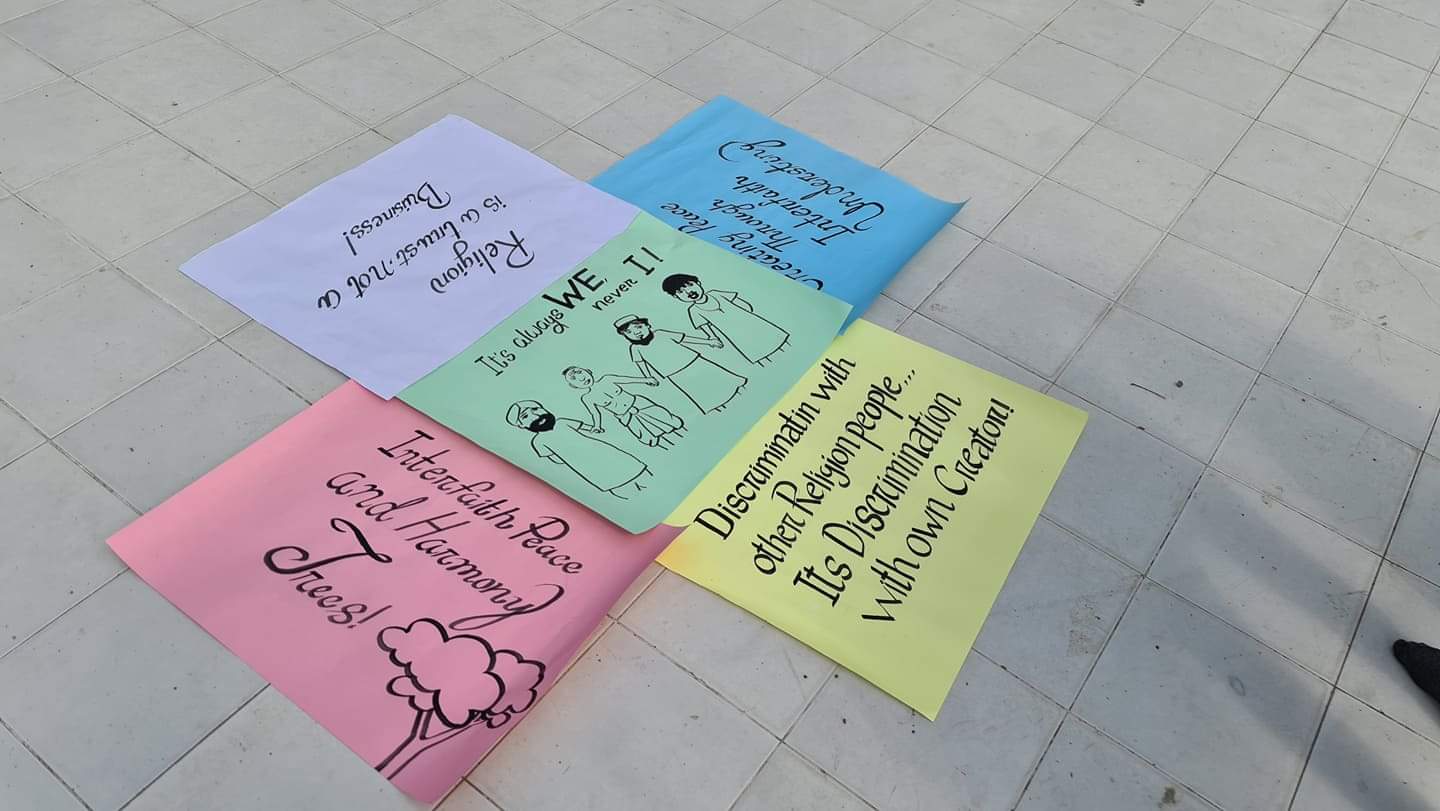 Religion
is a trust not a
Business!
Creating Peace
Through
Interfaith
Understing
It's always WE,
never I!
Interfaith Peace
and Harmony
Trees!
Discriminatin with
other Religion people...
Its Discrimination
with own Creator!